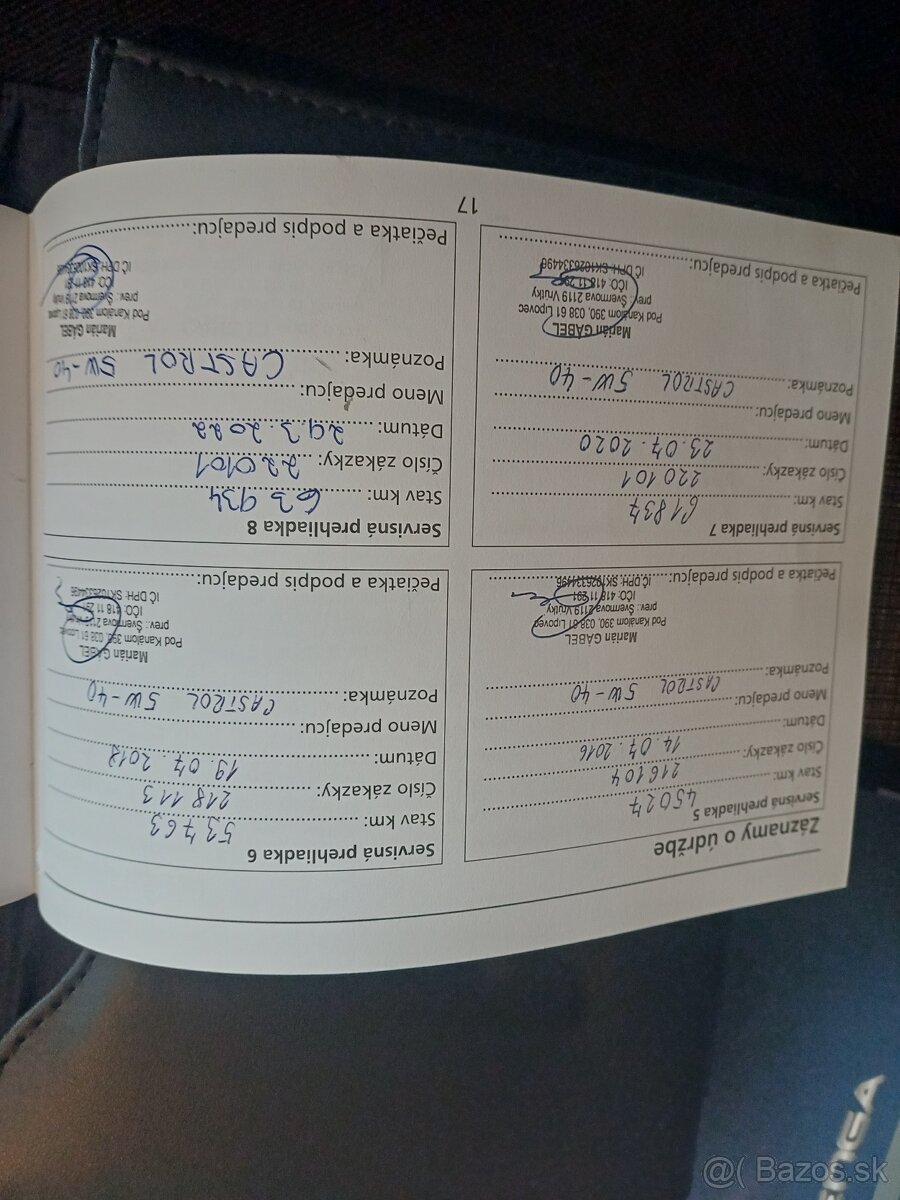 Záznamy o údržbe
Servisná prehliadka 5
Stav km: 45027
Číslo zákazky: 216104
Dátum: 14.07.2016
Meno predajcu:
Poznámka: CASTROL 5W-40
Pečiatka a podpis predajcu:
Marián GÁBEL
Pod Kanálom 390, 038 61 Lipovec
prev.: Švermova 2119 Vrútky
IČO: 418 11 291
IČ DPH: SK1026334496
Servisná prehliadka 6
Stav km: 53763
Číslo zákazky: 218113
Dátum: 19.07.2018
Meno predajcu:
Poznámka: CASTROL 5W-40
Pečiatka a podpis predajcu:
Marián GÁBEL
Pod Kanálom 390, 038 61 Lipovec
prev.: Švermova 2119
IČO: 418 11 291
IČ DPH: SK1026334496
Servisná prehliadka 7
Stav km: 61837
Číslo zákazky: 220101
Dátum: 23.07.2020
Meno predajcu:
Poznámka: CASTROL 5W-40
Pečiatka a podpis predajcu:
Marián GÁBEL
Pod Kanálom 390, 038 61 Lipovec
prev.: Švermova 2119 Vrútky
IČO: 418 11 291
IČ DPH: SK1026334496
Servisná prehliadka 8
Stav km: 63934
Číslo zákazky: 220101
Dátum: 29.3.2022
Meno predajcu:
Poznámka: CASTROL 5W-40
Pečiatka a podpis predajcu:
Marián GÁBEL
Pod Kanálom 390, 038 61 Lipovec
prev.: Švermova 2119
IČO: 418 11
IČ DPH: SK1026334496
17
@( Bazos.sk